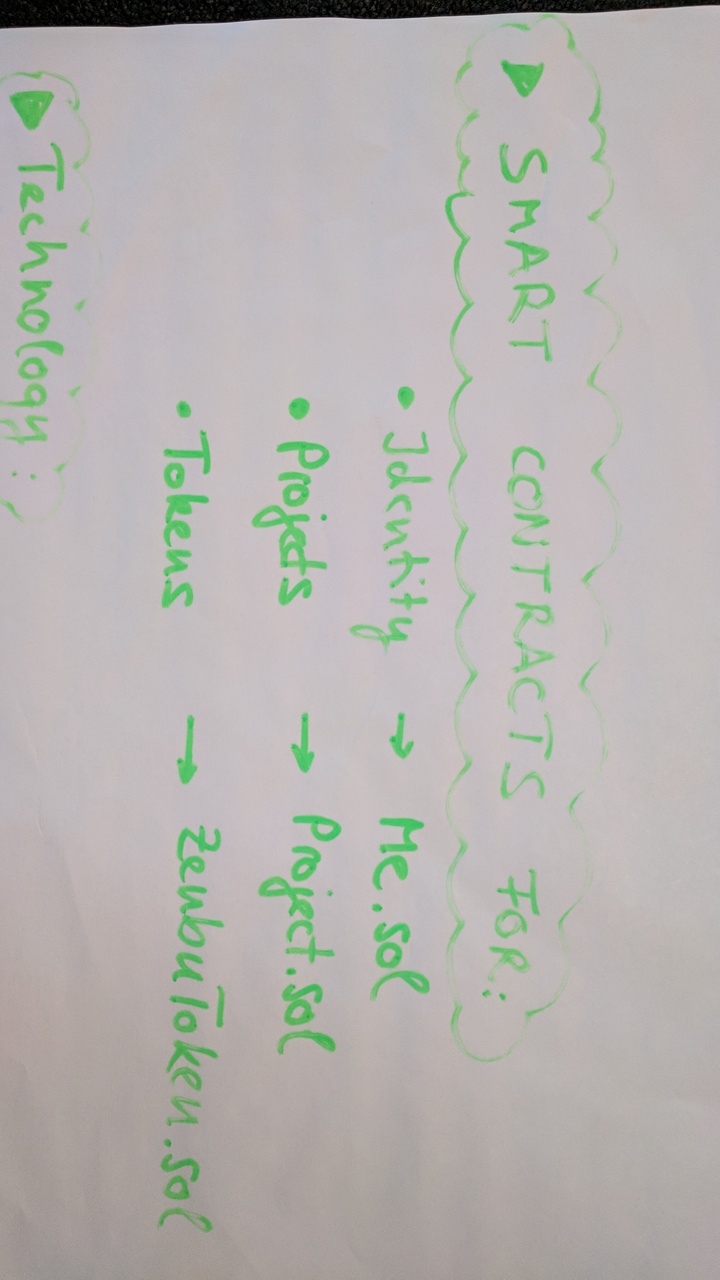 ▶ SMART CONTRACTS FOR:
• Identity → Me.sol
• Projects → Project.sol
• Tokens → ZenbuToken.sol
▶ Technology: